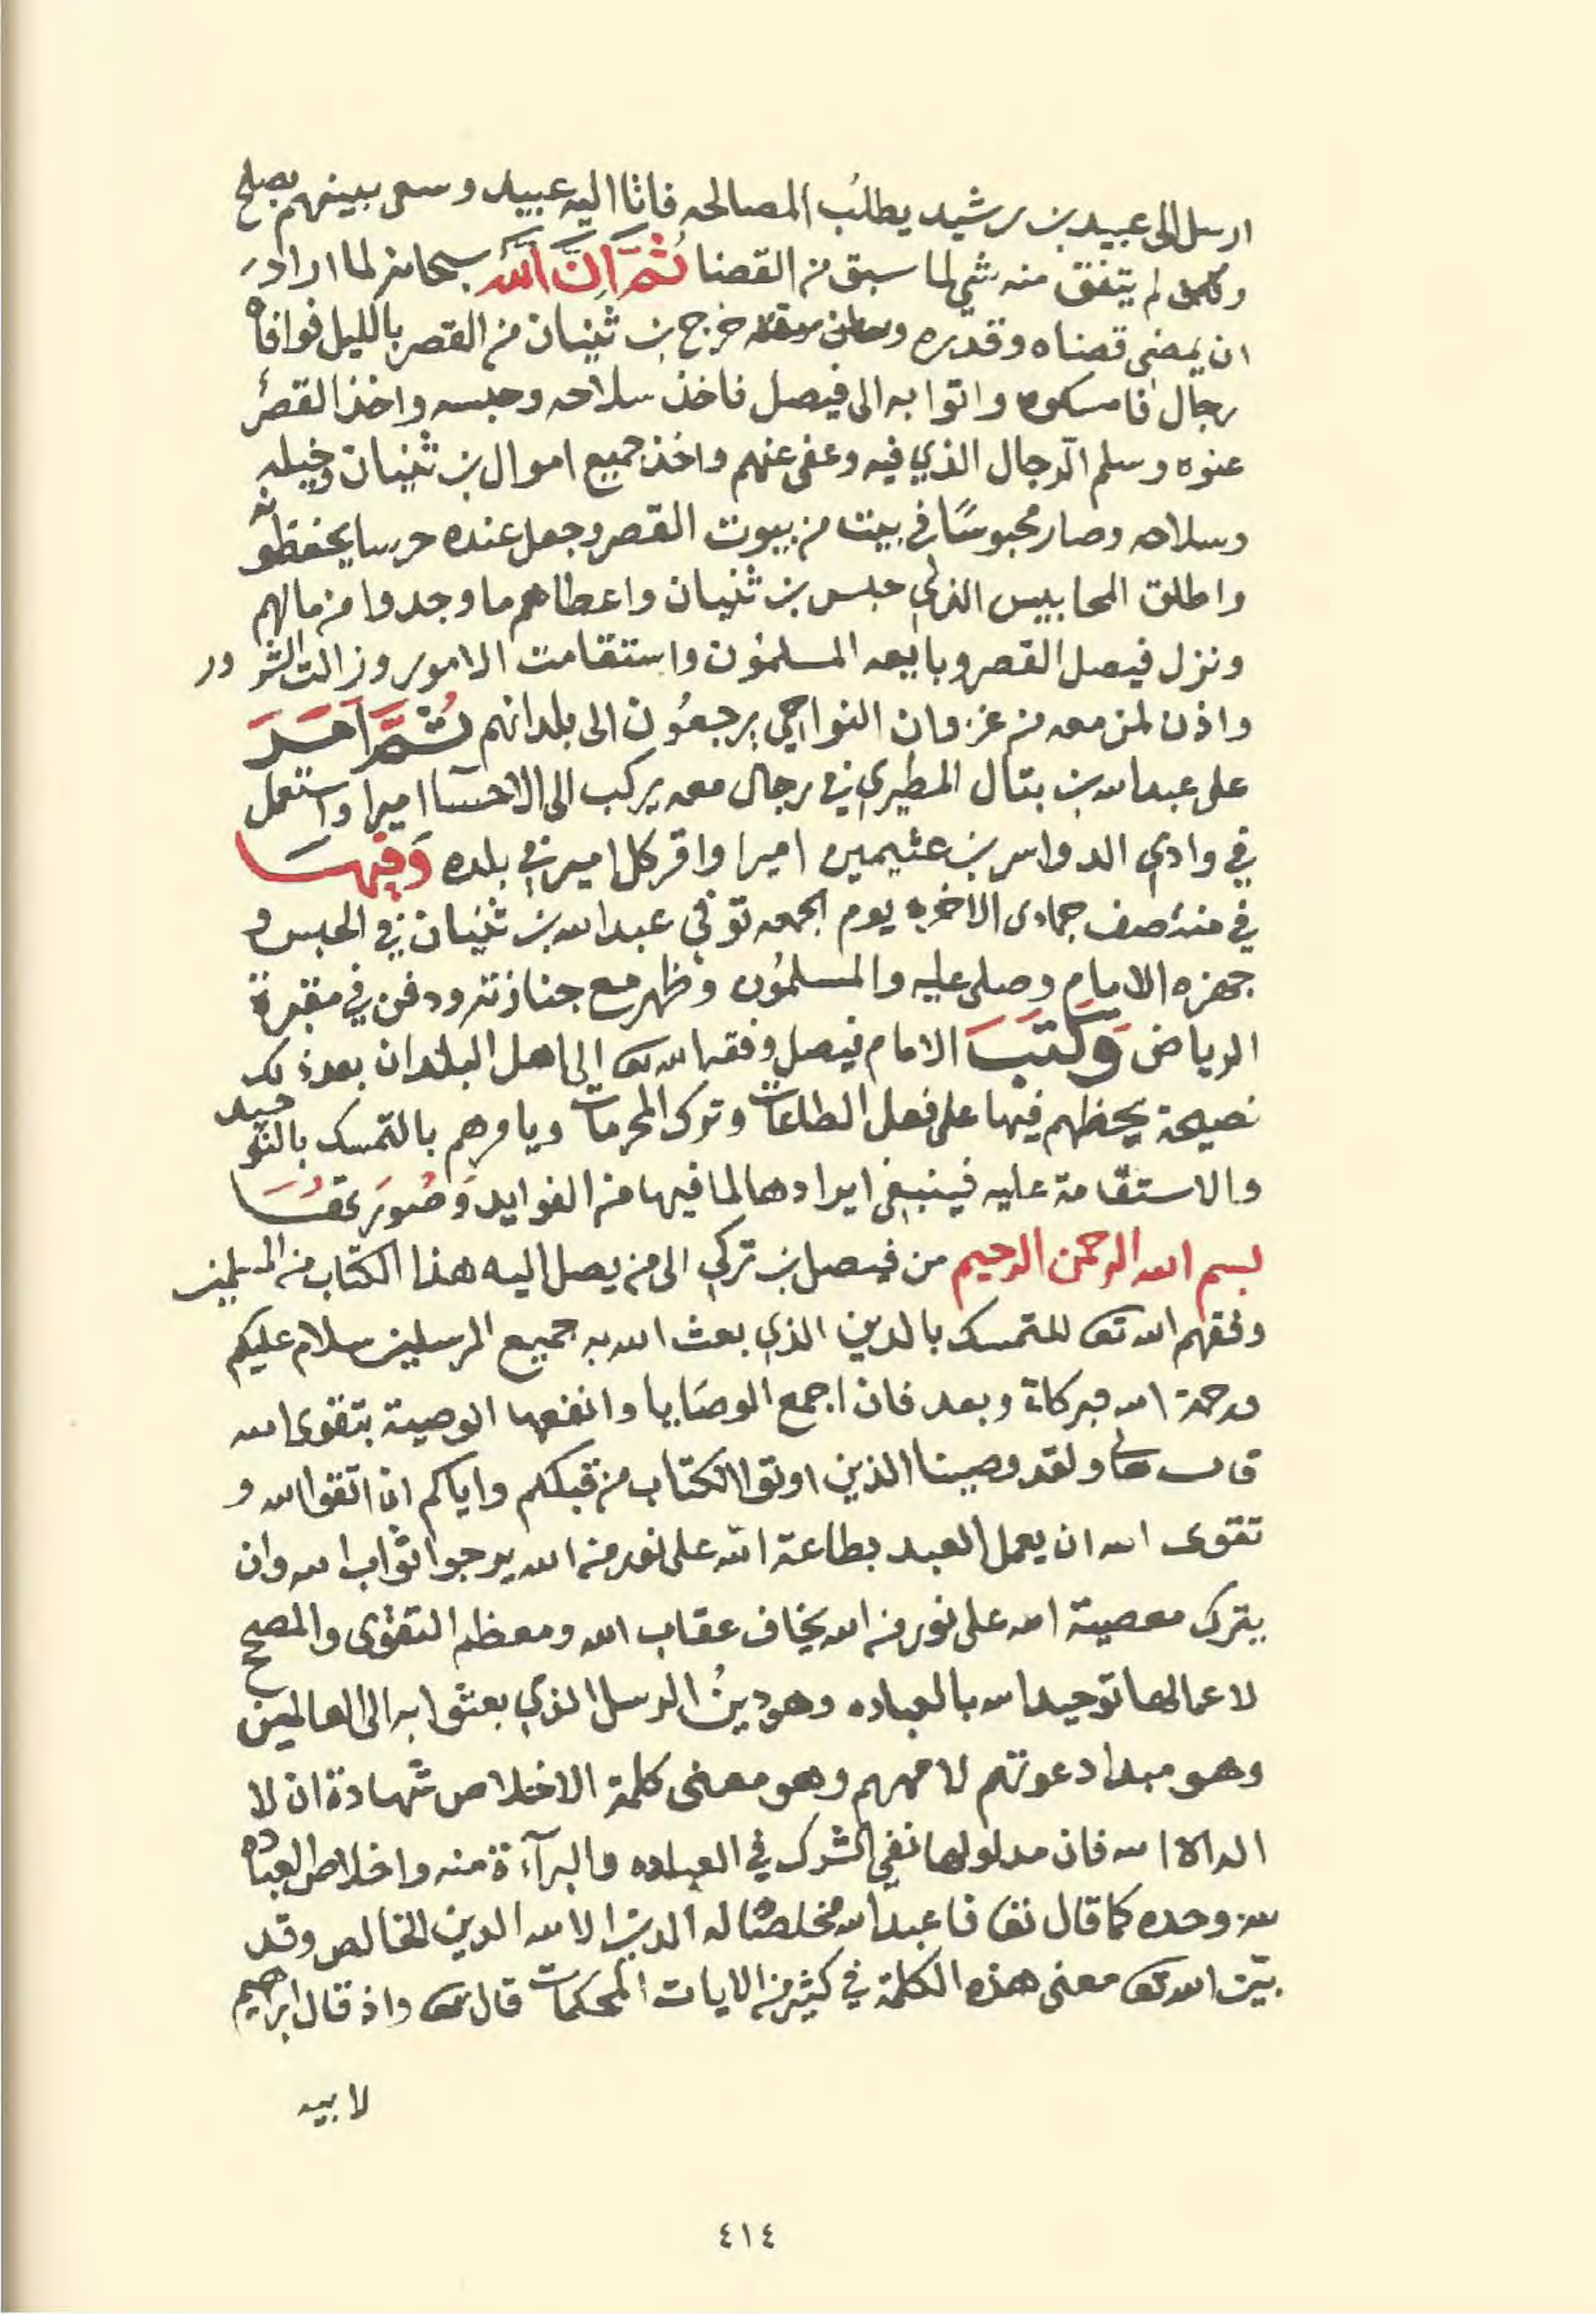 ارسل الى عبيد بن رشيد يطلب المصالحه فاتا اليه عبيد وسعى بينهم بصلح
ولم يتفق منه شي لما سبق من القضا ثُمَّ اَنَّ اَللّه سبحانه لما اراد
ان يمضي قضاه وقدره خرج بن ثنيان من القصر بالليل فوافاه
رجال فامسكوه واتوا به الى فيصل فاخذ سلاحه وحبسه واخذ القصر
عنوه وسلم الرجال الذي فيه وعفى عنهم واخذ جميع اموال بن ثنيان وخيله
وسلاحه وصار محبوسًا في بيت من بيوت القصر وجعل عنده حرسا يحفظونه
واطلق المحابيس الذي حبس بن ثنيان واعطاهم ما وجدوا من مالهم
ونزل فيصل القصر وبايعه المسلمُون واستقامت الامور وزالت الشرور
واذن لمن معه من غزوان النواحي يرجعُون الى بلدانهم ثُمَّ اَمَرَ
على عبدالله بن بتال المطيري في رجال معه يركب الى الاحسا اميرا واستعمل
في وادي الدواسر بن عثيمين اميرا واقر كل امير في بلده وَفِيهَا
في منتصف جمادى الاخره يوم الجمعه توفي عبدالله بن ثنيان في الحبس و
جهزه الامام وصلى عليه والمسلمُون وظهر مع جنازته ودفن في مقبرة
الرياض وَكَتَبَ الامام فيصل وفقه الله تعا الى اهل البلدان بعد ذلك
نصيحة يحظهم فيها على فعل الطاعات وترك المحرمات ويامرهم بالتمسك بالتوحيد
والاستقامة عليه فينبغي ايرادها لما فيها من الفوايد وَصُورَتهَا
بسم الله الرحمن الرحيم من فيصل بن تركي الى من يصل اليه هذا الكتاب من المسلمين
وفقهم الله تعا للتمسك بالدين الذي بعث الله به جميع المرسلين سلام عليكم
ورحمة الله وبركاة وبعد فان اجمع الوصَايا وانفعها الوصية بتقوى الله
قال تعالى ولقد وصينا الذين اوتوا الكتاب من قبلكم واياكم ان اتقوا الله و
تقوى الله ان يعمل العبد بطاعة الله على نور من الله يرجوا ثواب الله وان
يترك معصية الله على نور من الله يخاف عقاب الله ومعظم التقوى والمصحح
لاعمالها توحيد الله بالعباده وهو دينُ الرسل الذي بعثوا به الى العالمين
وهو مبدا دعوتهم لاممهم وهو معنى كلمة الاخلاص شهادة ان لا
اله الا الله فان مدلولها نفي الشرك في العباده والبرآءة منه واخلاص العباده
لله وحده كما قال تعا فاعبد الله مخلصًا له الدين الا لله الدين الخالص وقد
بيّن الله تعا معنى هذه الكلمة في كثير من الايات المحكمات قال تعا واذ قال ابراهيم
لابيه
٤١٤